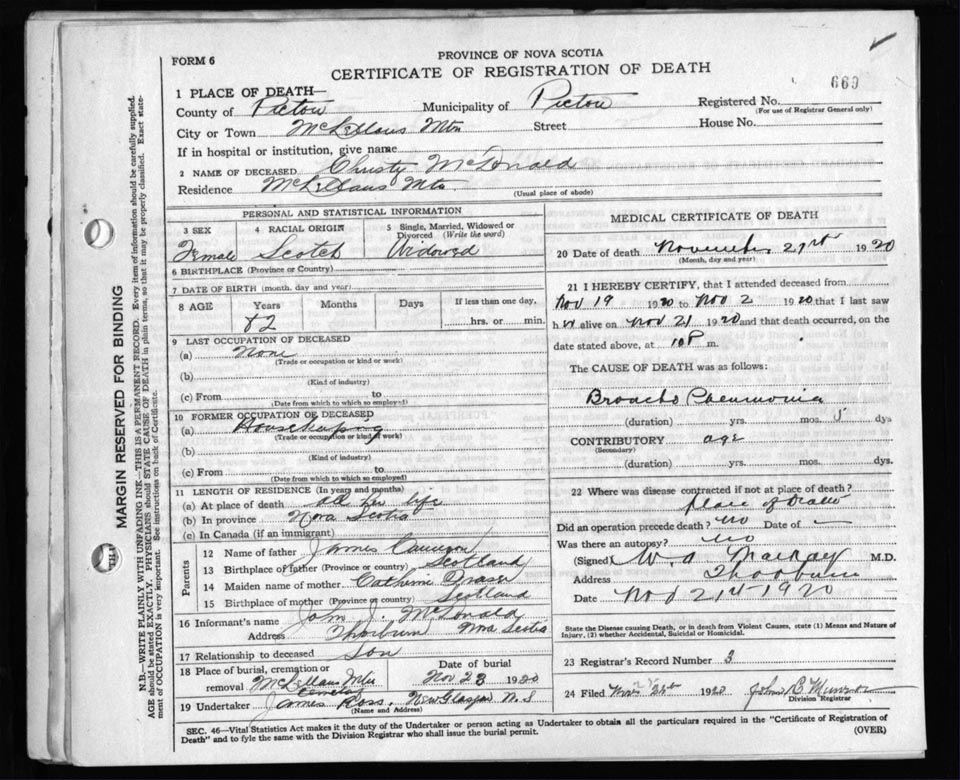 PROVINCE OF NOVA SCOTIA
FORM 6
CERTIFICATE OF REGISTRATION OF DEATH
669
1 PLACE OF DEATH—
County of Pictou Municipality of Pictou Registered No.
(For use of Registrar General only)
City or Town McLellans Mtn Street House No.
If in hospital or institution, give name
2 NAME OF DECEASED Christy McDonald
Residence McLellans Mtn
(Usual place of abode)
PERSONAL AND STATISTICAL INFORMATION
3 SEX 4 RACIAL ORIGIN 5 Single, Married, Widowed or Divorced (Write the word)
Female Scotch Widowed
6 BIRTHPLACE (Province or Country)
7 DATE OF BIRTH (month, day and year)
8 AGE Years Months Days If less than one day,
82 hrs. or min.
9 LAST OCCUPATION OF DECEASED
(a) None
(Trade or occupation or kind or work)
(b)
(Kind of industry)
(c) From to
(Date from which to which so employed)
10 FORMER OCCUPATION OF DECEASED
(a) Housekeeping
(Trade or occupation or kind of work)
(b)
(Kind of industry)
(c) From to
(Date from which to which so employed)
11 LENGTH OF RESIDENCE (In years and months)
(a) At place of death all her life
(b) In province Nova Scotia
(c) In Canada (if an immigrant)
Parents
12 Name of father James Cameron
13 Birthplace of father (Province or country) Scotland
14 Maiden name of mother Catherine Fraser
15 Birthplace of mother (Province or country) Scotland
16 Informant's name John J. McDonald
Address Thorburn Nova Scotia
17 Relationship to deceased Son
18 Place of burial, cremation or removal McLellans Mtn cemetery
Date of burial Nov 23 1920
19 Undertaker James Ross, New Glasgow N.S
(Name and Address)
MEDICAL CERTIFICATE OF DEATH
20 Date of death November 21st 1920
(Month, day and year)
21 I HEREBY CERTIFY, that I attended deceased from
Nov 19 1920 to Nov 2 1920 that I last saw
her alive on Nov 21 1920 and that death occurred, on the
date stated above, at 10 P m.
The CAUSE OF DEATH was as follows:
Broncho Pneumonia
(duration) yrs. mos. 5 dys
CONTRIBUTORY age
(Secondary)
(duration) yrs. mos. dys.
22 Where was disease contracted if not at place of death?
place of Death
Did an operation precede death? no Date of —
Was there an autopsy? no
(Signed) W. A. MacKay M.D.
Address Thorburn
Date Nov 21st 1920
State the Disease causing Death, or in death from Violent Causes, state (1) Means and Nature of Injury, (2) whether Accidental, Suicidal or Homicidal.
23 Registrar's Record Number 3
24 Filed 1920 John R Munroe
Division Registrar
SEC. 46—Vital Statistics Act makes it the duty of the Undertaker or person acting as Undertaker to obtain all the particulars required in the "Certificate of Registration of
Death" and to fyle the same with the Division Registrar who shall issue the burial permit. (OVER)
MARGIN RESERVED FOR BINDING
N.B.—WRITE PLAINLY WITH UNFADING INK—THIS IS A PERMANENT RECORD. Every item of information should be carefully supplied.
AGE should be stated EXACTLY. PHYSICIANS should STATE CAUSE OF DEATH in plain terms, so that it may be properly classified. Exact state-
ment of OCCUPATION is very important. See instructions on back of Certificate.